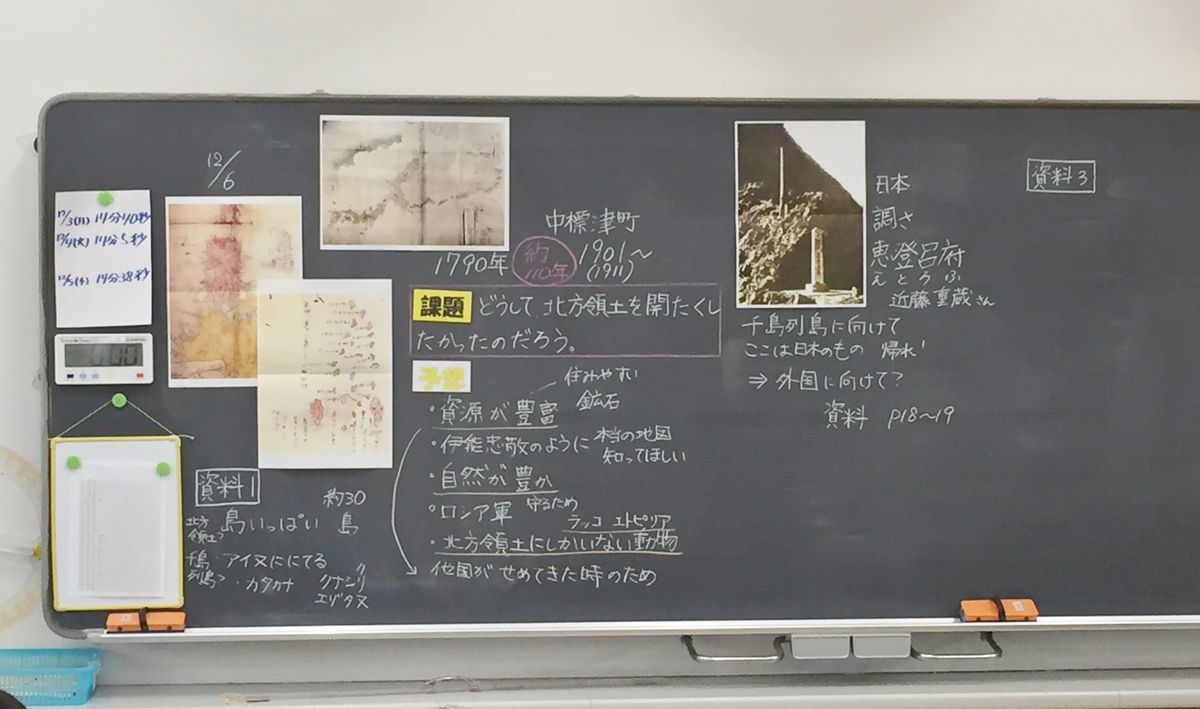 12/6
12/3(月) 14分40秒
12/4(火) 14分5秒
12/5(水) 14分38秒
資料1
約30
北方領土?
島いっぱい 島
千島列島?
・アイヌににてる
・カタカナ
ク
クナシリ
エゾタヌ
中標津町
1790年
約110年
1901〜
(1911)
課題 どうして北方領土を開たくし
たかったのだろう。
予想
住みやすい
鉱石
・資源が豊富
・伊能忠敬のように 本当の地図
知ってほしい
・自然が豊か
・ロシア軍 守るため
ラッコ エトピリア
・北方領土にしかいない動物
他国がせめてきた時のため
日本
調さ
恵登呂府
えとろふ
近藤重蔵さん
千島列島に向けて
ここは日本のもの 帰れ!
⇒ 外国に向けて?
資料 P18〜19
資料3